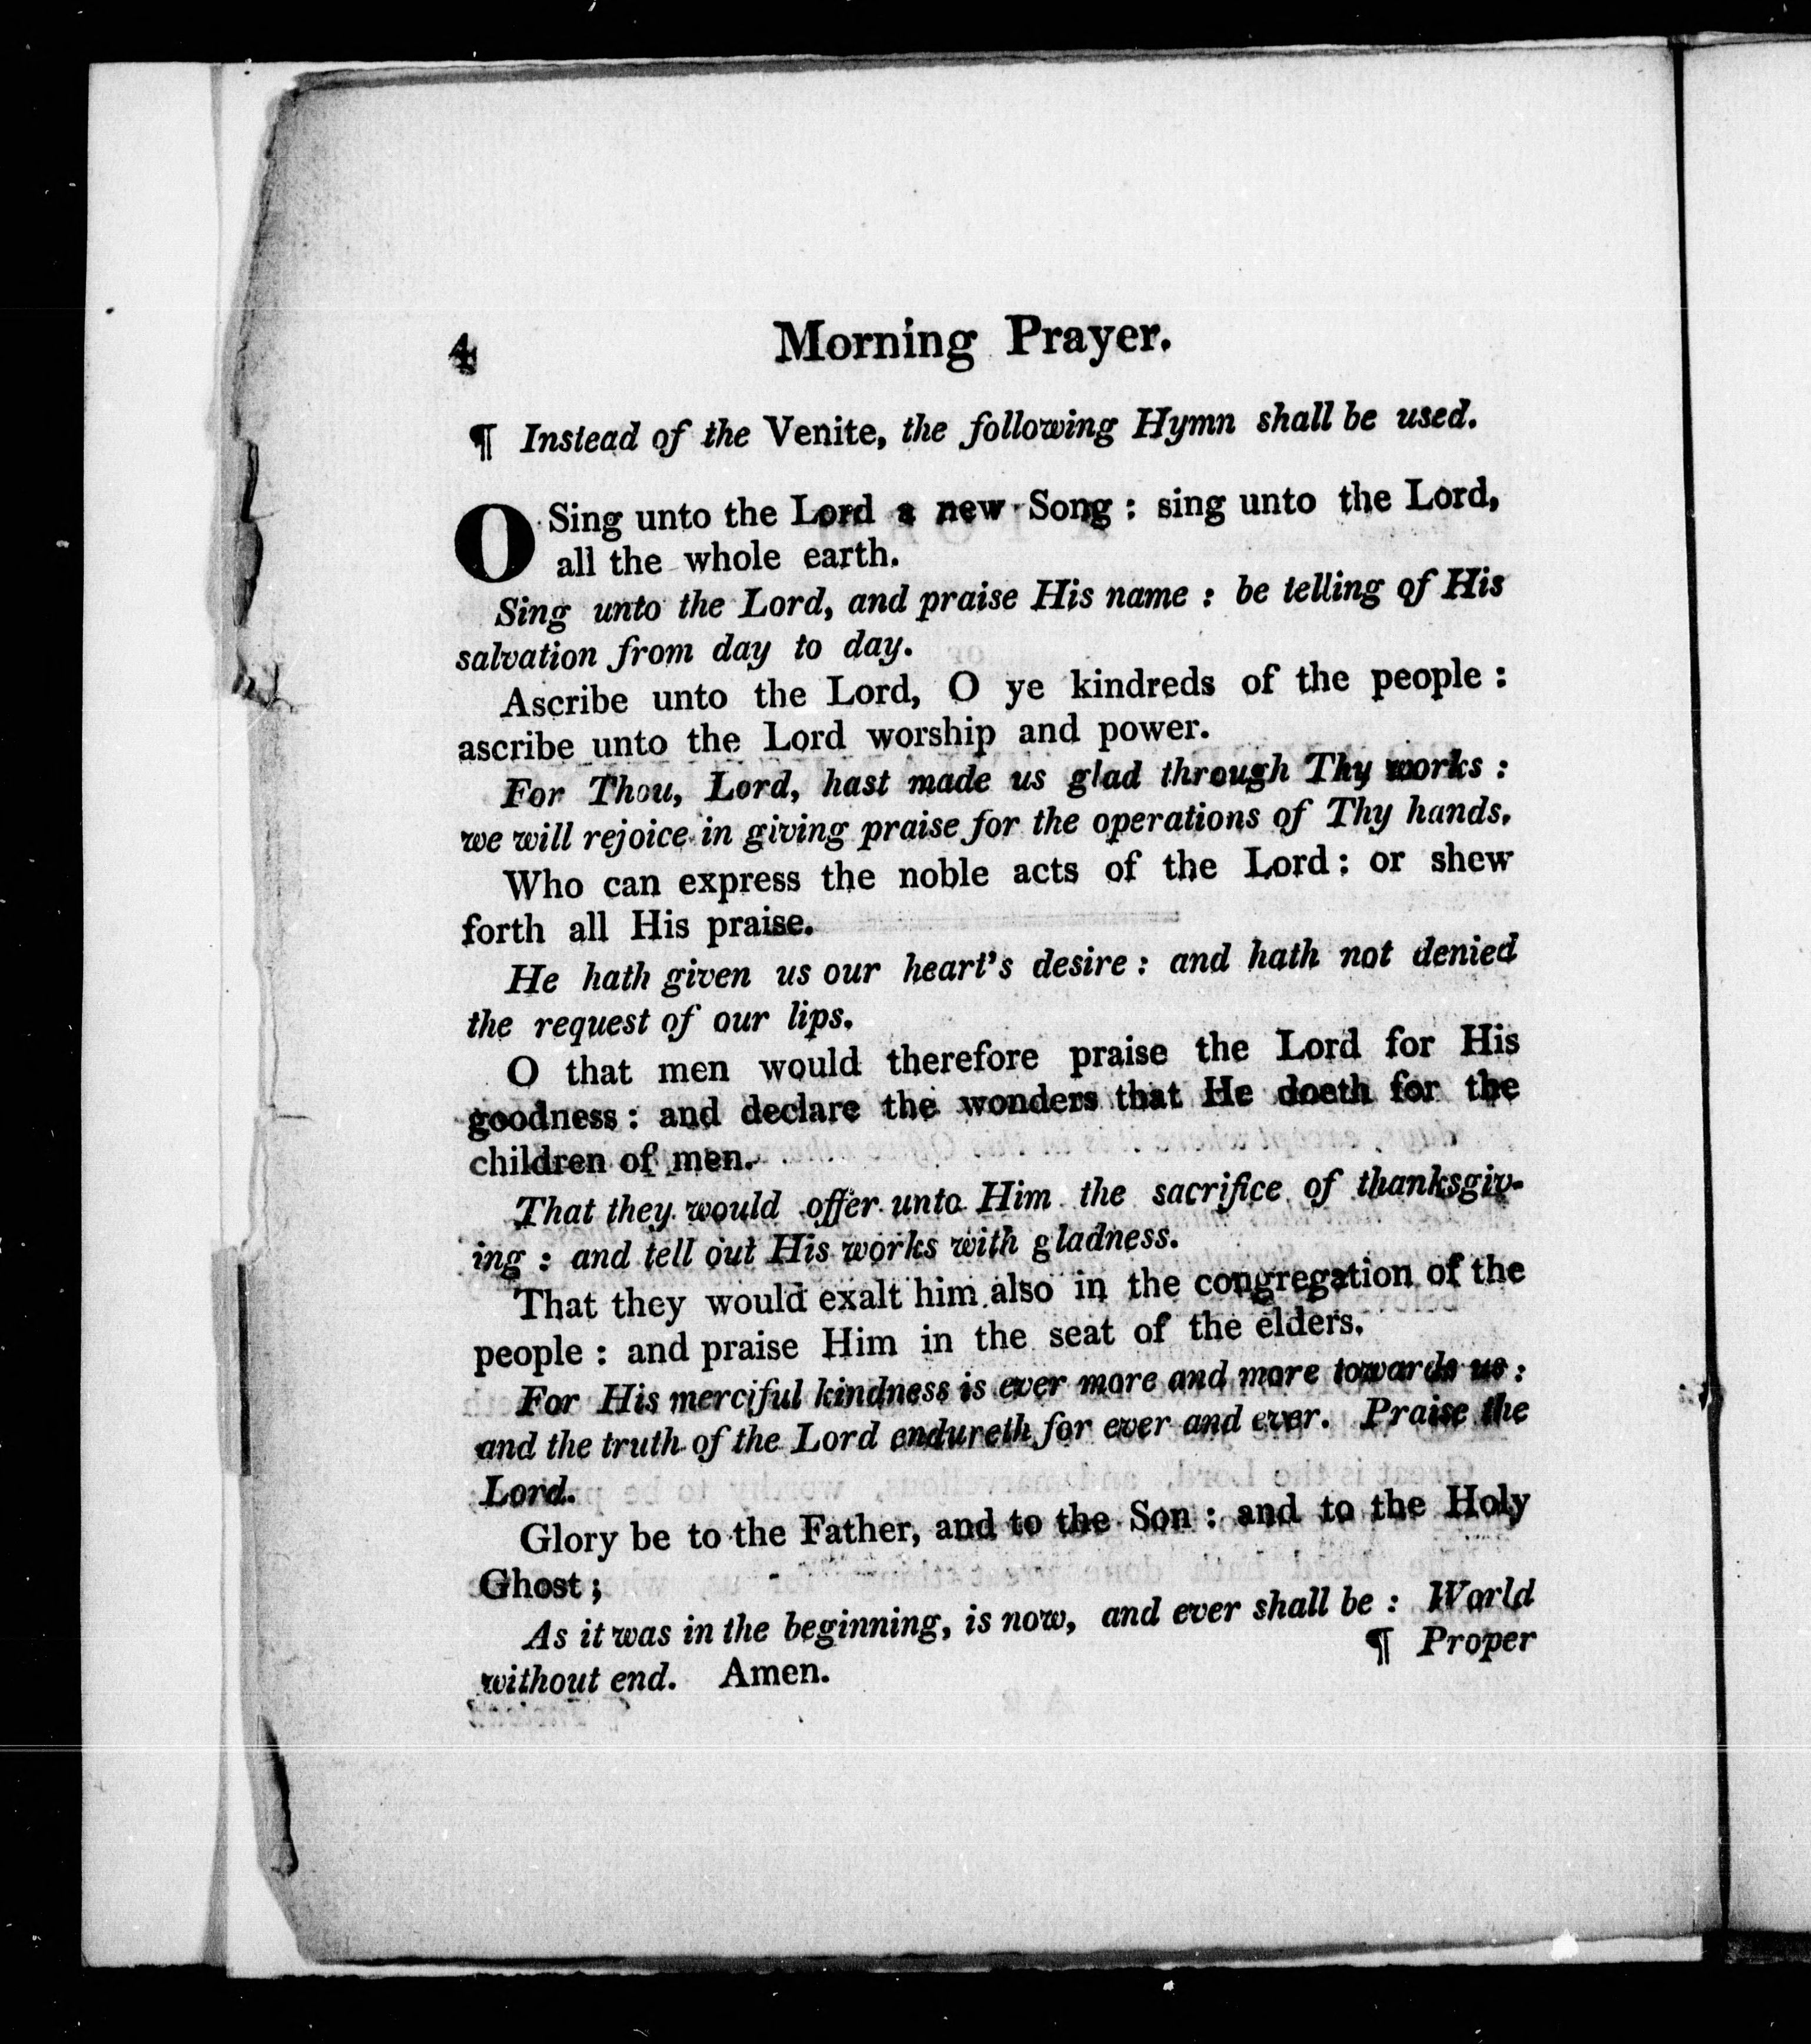 4 Morning Prayer.
¶ Instead of the Venite, the following Hymn shall be used.
O Sing unto the Lord a new Song : sing unto the Lord,
all the whole earth.
Sing unto the Lord, and praise His name : be telling of His
salvation from day to day.
Ascribe unto the Lord, O ye kindreds of the people :
ascribe unto the Lord worship and power.
For Thou, Lord, hast made us glad through Thy works :
we will rejoice in giving praise for the operations of Thy hands.
Who can express the noble acts of the Lord : or shew
forth all His praise.
He hath given us our heart's desire : and hath not denied
the request of our lips.
O that men would therefore praise the Lord for His
goodness : and declare the wonders that He doeth for the
children of men.
That they would offer unto Him the sacrifice of thanksgiv-
ing : and tell out His works with gladness.
That they would exalt him also in the congregation of the
people : and praise Him in the seat of the elders.
For His merciful kindness is ever more and more towards us :
and the truth of the Lord endureth for ever and ever. Praise the
Lord.
Glory be to the Father, and to the Son : and to the Holy
Ghost ;
As it was in the beginning, is now, and ever shall be : World
without end. Amen.
¶ Proper